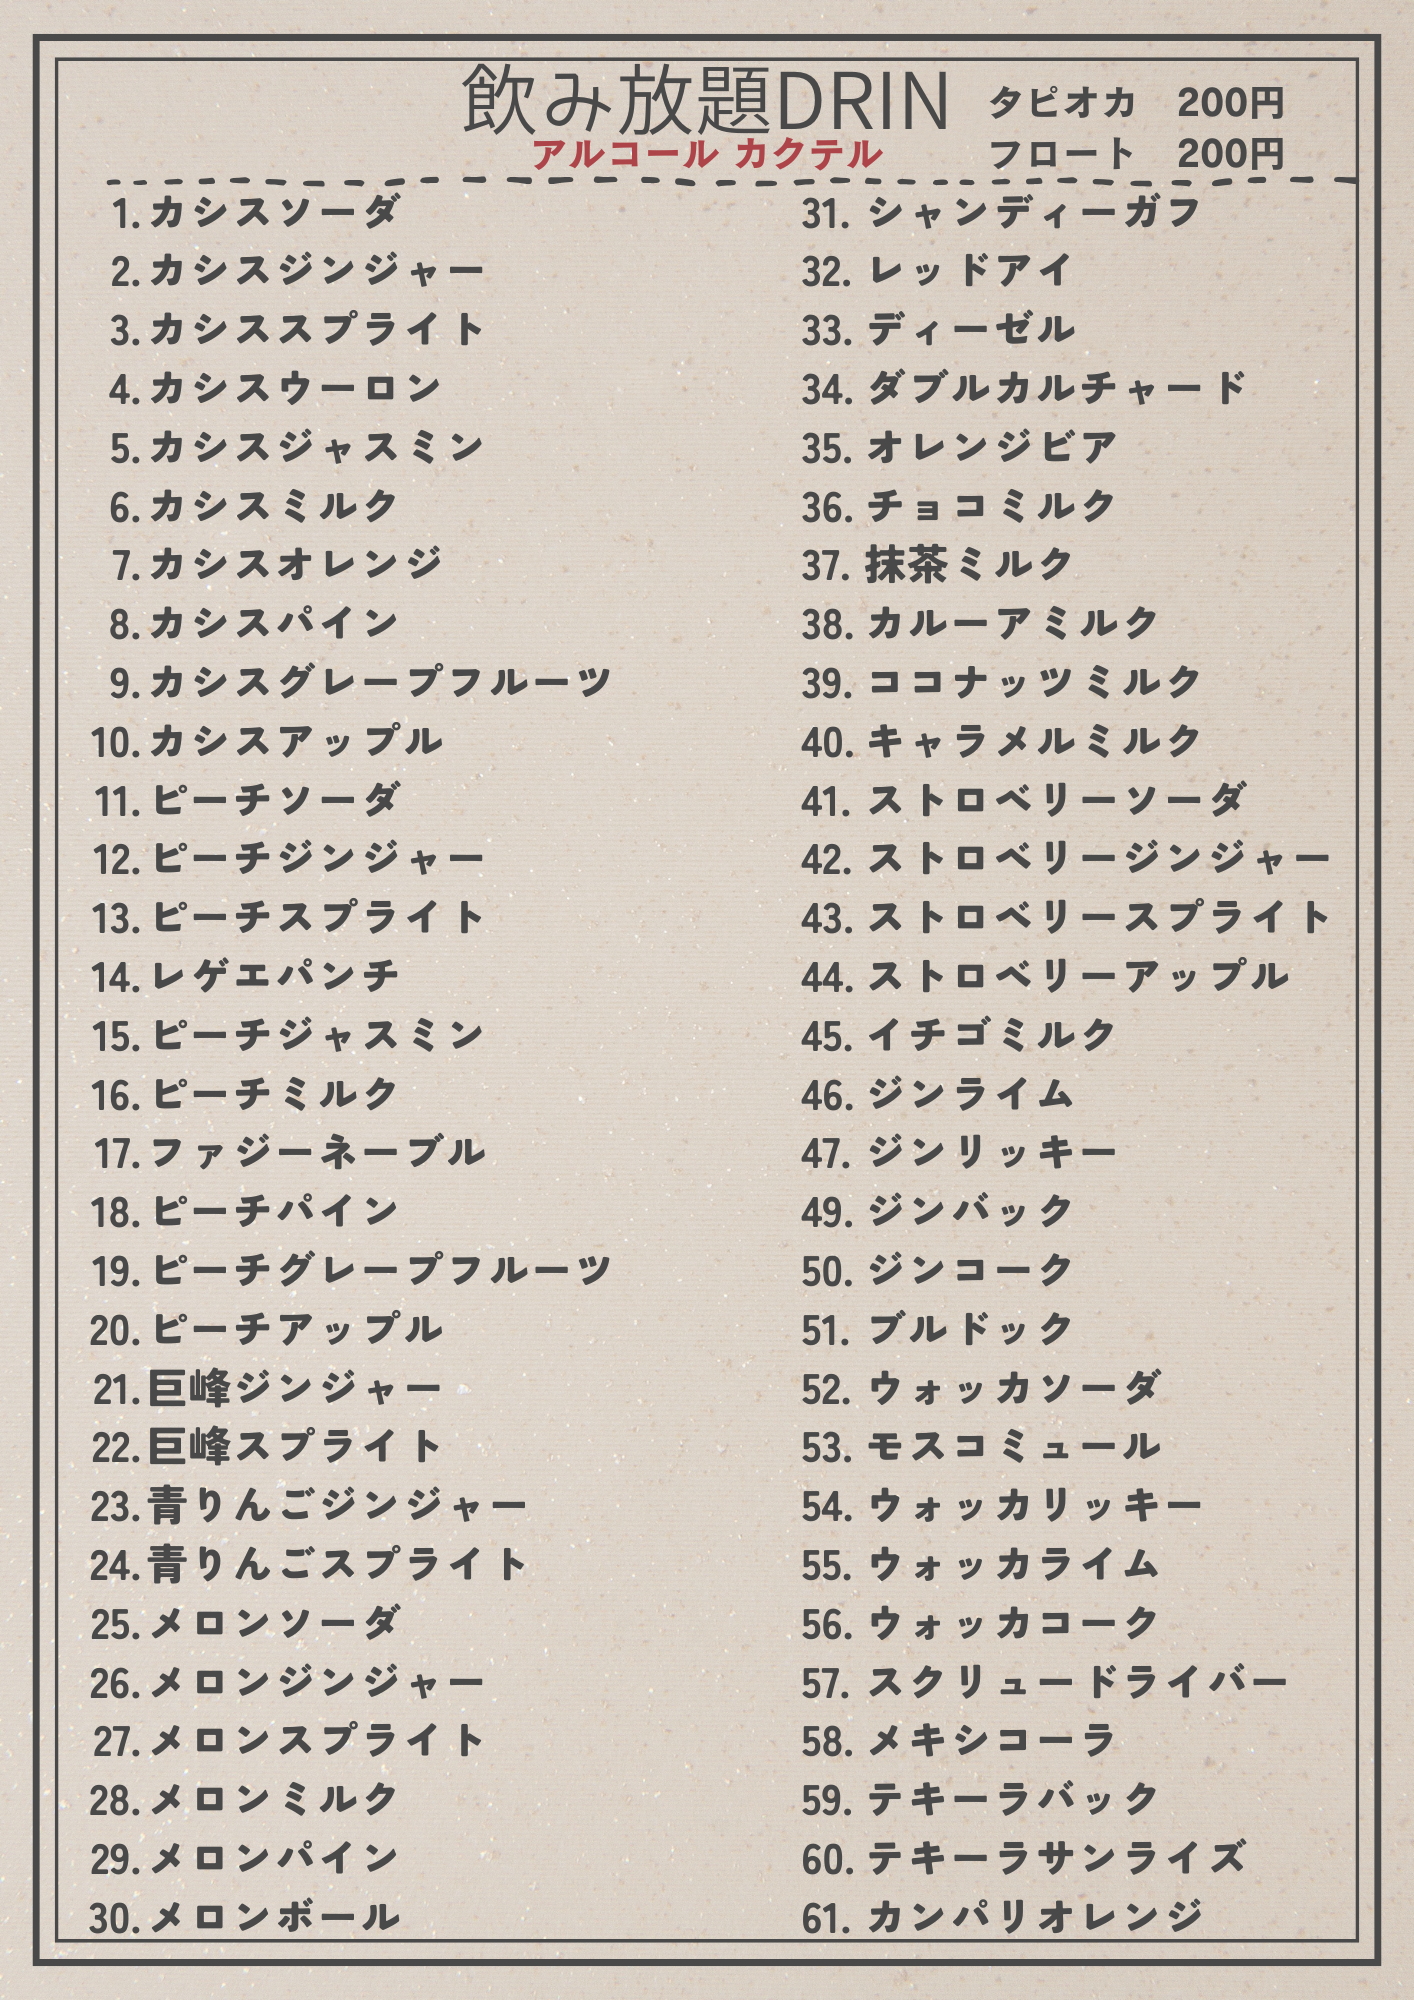 飲み放題DRIN
アルコール カクテル
タピオカ 200円
フロート 200円
1. カシスソーダ
2. カシスジンジャー
3. カシススプライト
4. カシスウーロン
5. カシスジャスミン
6. カシスミルク
7. カシスオレンジ
8. カシスパイン
9. カシスグレープフルーツ
10. カシスアップル
11. ピーチソーダ
12. ピーチジンジャー
13. ピーチスプライト
14. レゲエパンチ
15. ピーチジャスミン
16. ピーチミルク
17. ファジーネーブル
18. ピーチパイン
19. ピーチグレープフルーツ
20. ピーチアップル
21. 巨峰ジンジャー
22. 巨峰スプライト
23. 青りんごジンジャー
24. 青りんごスプライト
25. メロンソーダ
26. メロンジンジャー
27. メロンスプライト
28. メロンミルク
29. メロンパイン
30. メロンボール
31. シャンディーガフ
32. レッドアイ
33. ディーゼル
34. ダブルカルチャード
35. オレンジビア
36. チョコミルク
37. 抹茶ミルク
38. カルーアミルク
39. ココナッツミルク
40. キャラメルミルク
41. ストロベリーソーダ
42. ストロベリージンジャー
43. ストロベリースプライト
44. ストロベリーアップル
45. イチゴミルク
46. ジンライム
47. ジンリッキー
49. ジンバック
50. ジンコーク
51. ブルドック
52. ウォッカソーダ
53. モスコミュール
54. ウォッカリッキー
55. ウォッカライム
56. ウォッカコーク
57. スクリュードライバー
58. メキシコーラ
59. テキーラバック
60. テキーラサンライズ
61. カンパリオレンジ